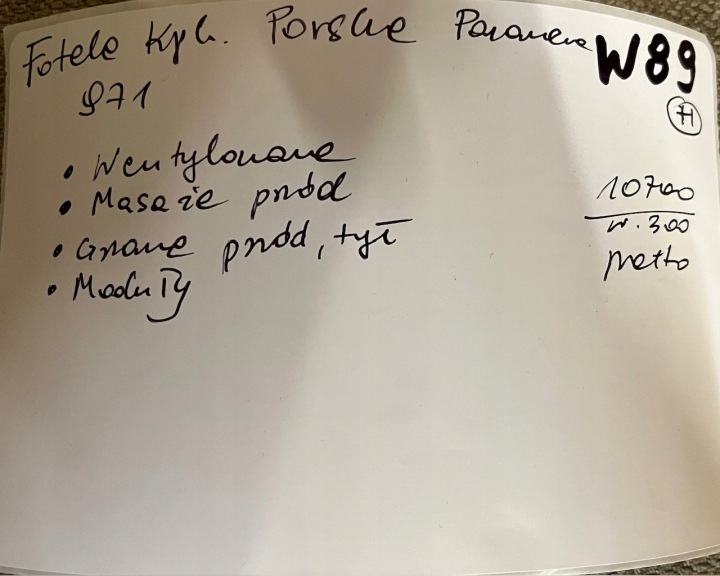 Fotele Kpl. Porsche Panamera W89
971 H
• Wentylowane
• Masaże przód
• Grzane przód, tył
• Moduły
10700
W. 300
netto